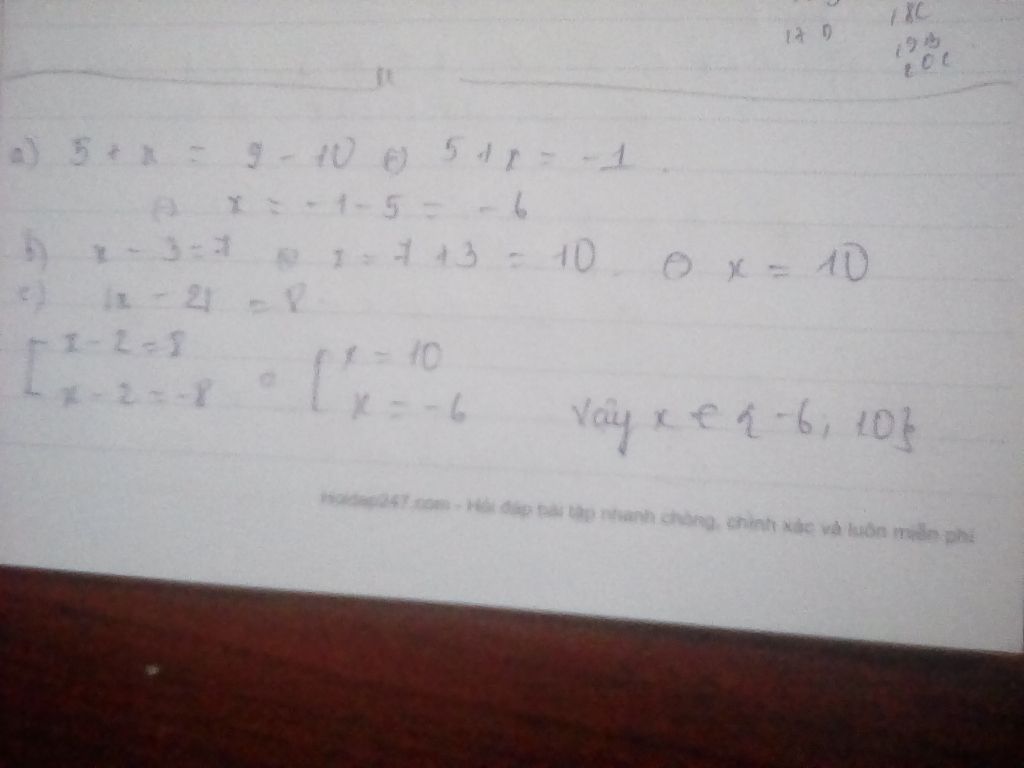 18C
17 D
19B
20C
a) 5 + x = 9 - 10 ⇔ 5 + x = -1.
⇔ x = -1 - 5 = -6
b) x - 3 = 7 ⇔ x = 7 + 3 = 10. ⇔ x = 10
c) |x - 2| = 8
[ x - 2 = 8 ⇔ [ x = 10
x - 2 = -8 x = -6 Vậy x ∈ {-6; 10}
Hoidap247.com - Hỏi đáp bài tập nhanh chóng, chính xác và luôn miễn phí